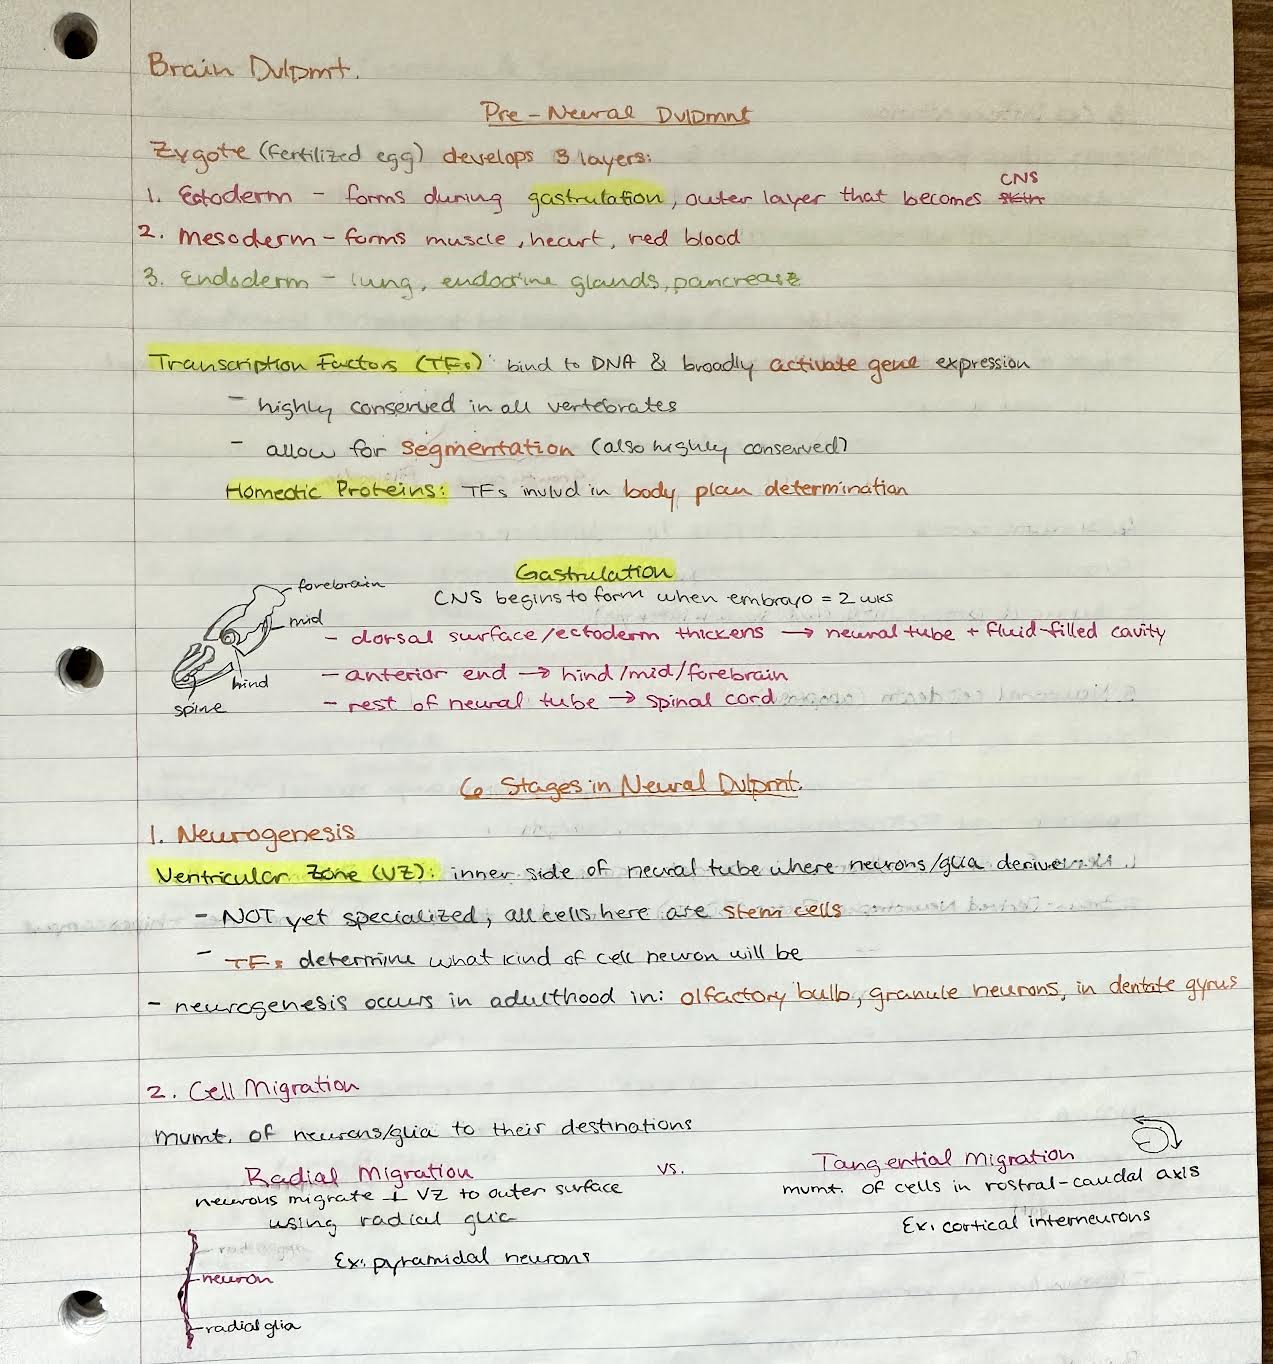 Brain Dvlpmt.
Pre-Neural Dvlpmnt
Zygote (fertilized egg) develops 3 layers:
CNS
1. Ectoderm - forms during gastrulation, outer layer that becomes skin
2. Mesoderm - forms muscle, heart, red blood
3. Endoderm - lung, endocrine glands, pancrease
Transcription Factors (TFs): bind to DNA & broadly activate gene expression
- highly conserved in all vertebrates
- allow for segmentation (also highly conserved)
Homeotic Proteins: TFs invlvd in body plan determination
Gastrulation
forebrain
CNS begins to form when embrayo = 2 wks
mid
- dorsal surface/ectoderm thickens → neural tube + fluid-filled cavity
- anterior end → hind/mid/forebrain
hind
- rest of neural tube → spinal cord
spine
6 Stages in Neural Dvlpmt.
1. Neurogenesis
Ventricular Zone (VZ): inner side of neural tube where neurons/glia derive
- NOT yet specialized, all cells here are stem cells
- TFs determine what kind of cell neuron will be
- neurogenesis occurs in adulthood in: olfactory bulb, granule neurons, in dentate gyrus
2. Cell Migration
mvmt. of neurons/glia to their destinations
Radial Migration vs. Tangential Migration
neurons migrate ⊥ VZ to outer surface
mvmt. of cells in rostral-caudal axis
using radial glia
Ex: cortical interneurons
Ex: pyramidal neurons
neuron
radial glia